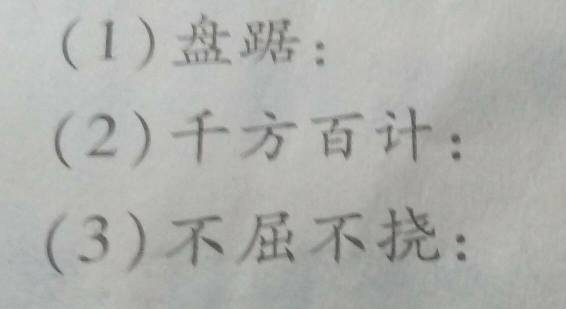 (1)盘踞：
(2)千方百计：
(3)不屈不挠：